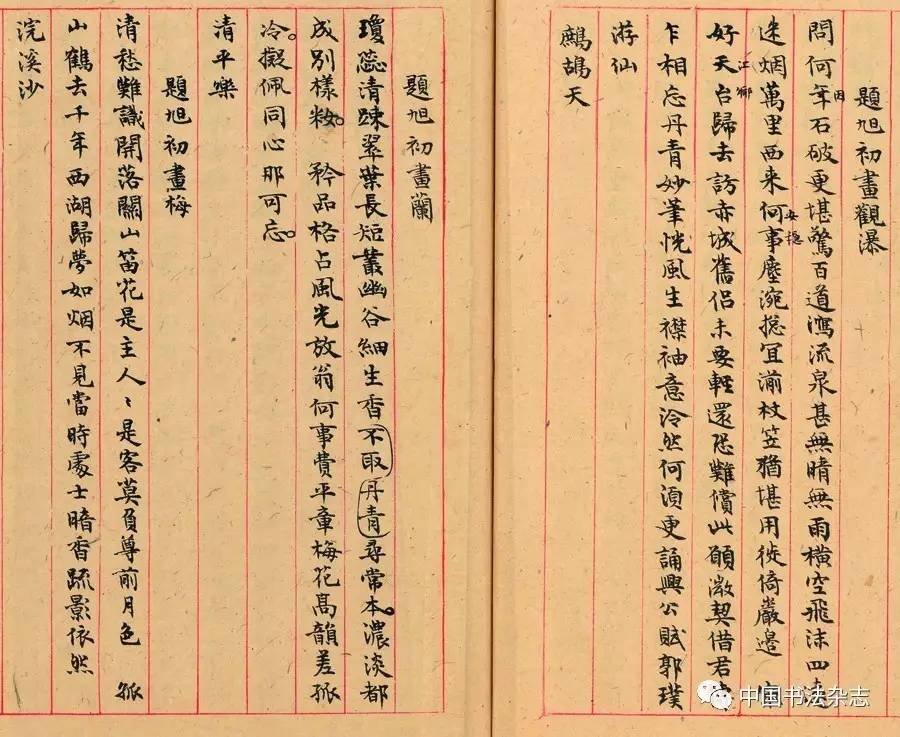 題旭初畫觀瀑
因
問何年石破更堪驚百道瀉流泉甚無晴無雨橫空飛沫四遠
迷烟萬里西来何事塵涴揔冝湔杖笠猶堪用徙倚巖邉
江鄉
好天台歸去訪赤城舊侶未要輕還恐難償此願契借君
乍相忘丹青妙筆恍風生襟袖意泠然何須更誦興公賦郭璞
游仙
鷓鴣天
題旭初畫蘭
瓊蕊清踈翠葉長短叢幽谷細生香不取丹青尋常本。濃淡都
成別樣粧。 矜品格占風光放翁何事費平章梅花高韻差孤
冷。擬佩同心那可忘。
清平樂
題旭初畫梅
清愁難識開落關山笛花是主人〻是客莫負尊前月色 孤
山鶴去千年西湖歸夢如烟不見當時處士暗香疏影依然
浣溪沙
中国书法杂志